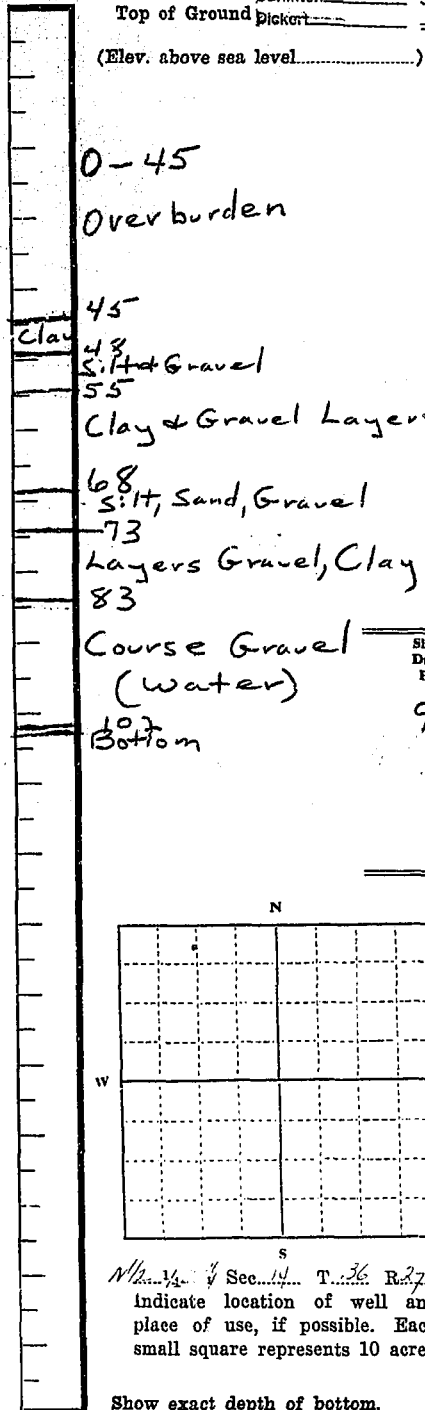 Top of Ground Dickert
(Elev. above sea level....................)
0-45
Overburden
45
Clay
48
Silt & Gravel
55
Clay & Gravel Layers
68
Silt, Sand, Gravel
73
Layers Gravel, Clay
83
Course Gravel
(Water)
Bottom
N
W
S
N1/2 1/4 Sec. 14 T. 36 R. 27
Indicate location of well an
place of use, if possible. Eac
small square represents 10 acre
Show exact depth of bottom.